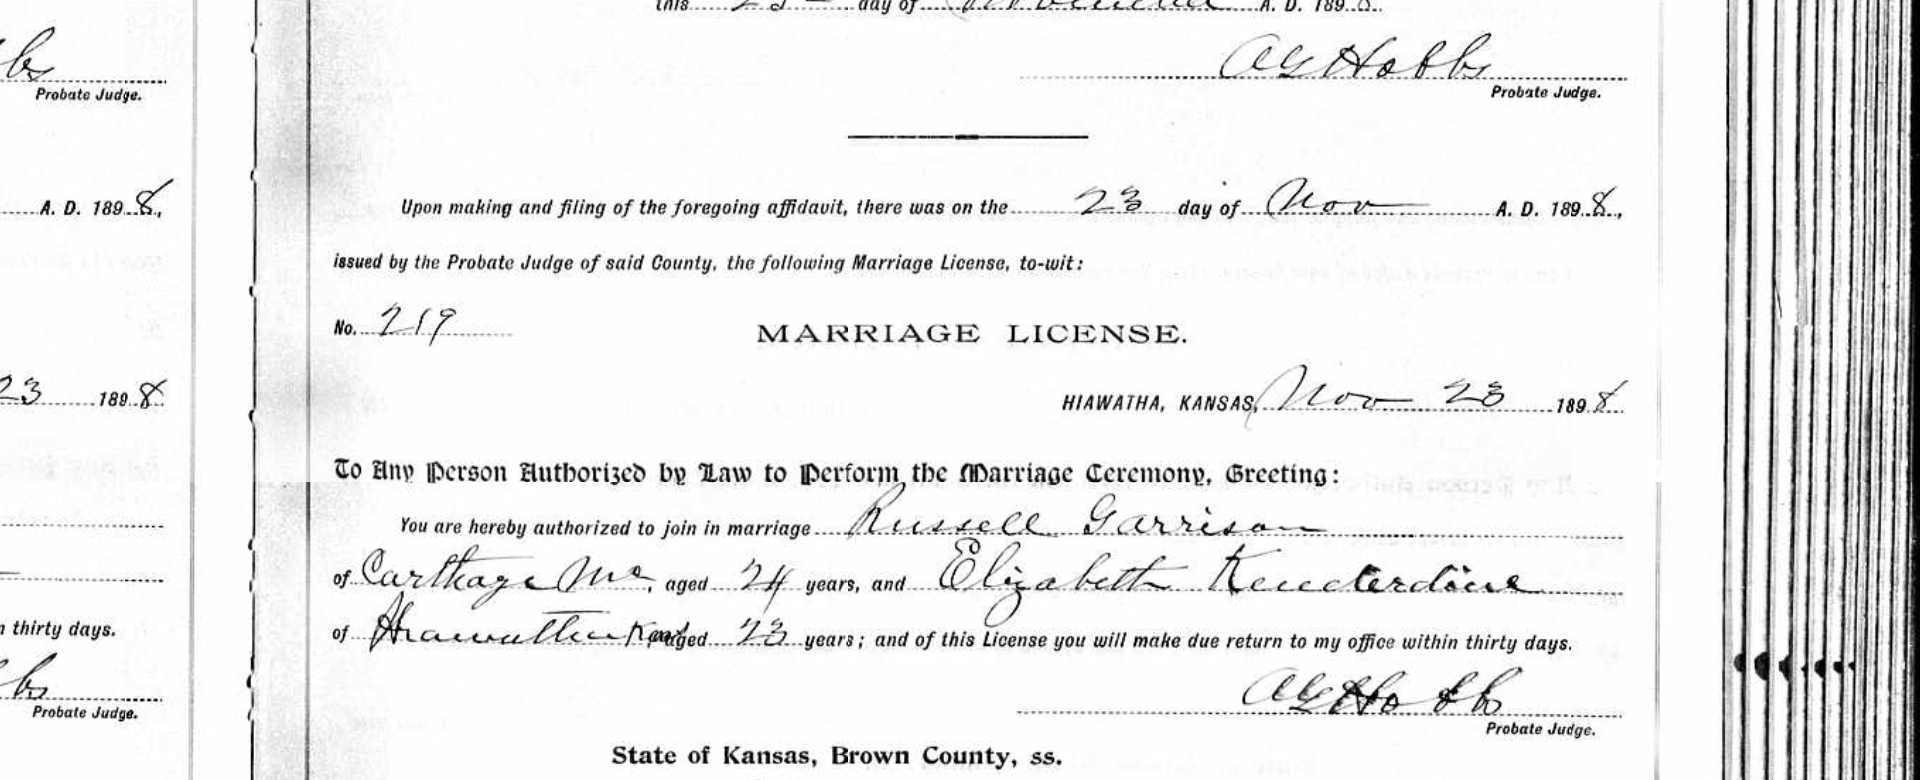 this 23 day of November A. D. 1898.
AG Hobbs
Probate Judge.
Upon making and filing of the foregoing affidavit, there was on the 23 day of Nov A. D. 1898,
issued by the Probate Judge of said County, the following Marriage License, to-wit:
No. 219
MARRIAGE LICENSE.
HIAWATHA, KANSAS, Nov 23 1898
To Any Person Authorized by Law to Perform the Marriage Ceremony, Greeting:
You are hereby authorized to join in marriage Russell Garrison
of Carthage Mo, aged 24 years, and Elizabeth Kenderdine
of Hiawatha Kans, aged 23 years; and of this License you will make due return to my office within thirty days.
AG Hobbs
Probate Judge.
State of Kansas, Brown County, ss.
bs
Probate Judge.
A. D. 1898,
23 1898
thirty days.
bs
Probate Judge.